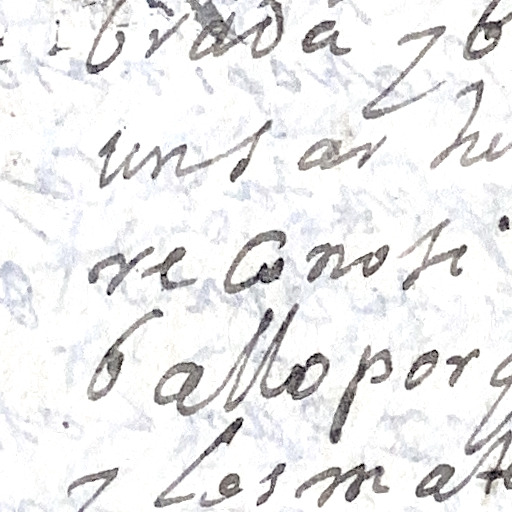 brada y b
uns ar hu
re Conosi
b allo porq
y Los mat